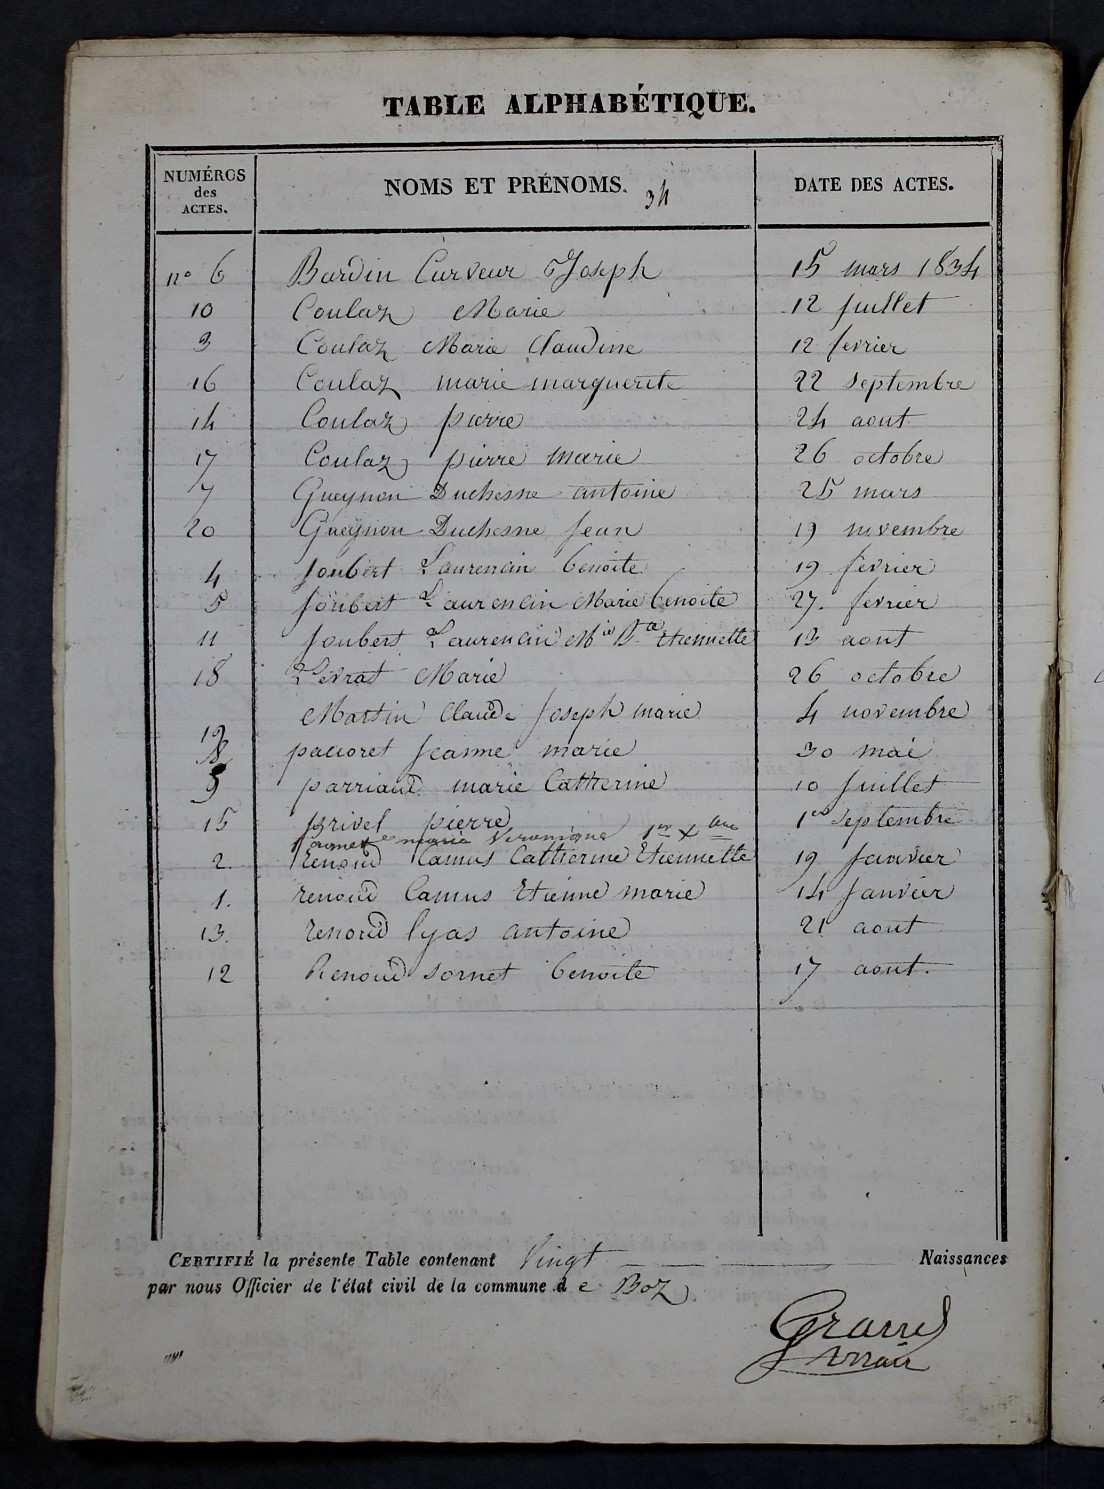 TABLE ALPHABÉTIQUE.
NUMÉROS des ACTES. NOMS ET PRÉNOMS. 34 DATE DES ACTES.
n° 6 Bardin Curveur Joseph 15 mars 1834
10 Coulaz Marie 12 juillet
3 Coulaz Marie Claudine 12 fevrier
16 Coulaz marie marguerite 22 septembre
14 Coulaz pierre 24 aout
17 Coulaz pierre marie 26 octobre
7 Gueynon Duchesne antoine 25 mars
20 Gueynon Duchesne Jean 19 novembre
4 Joubert Laurencin benoite 19 fevrier
5 Joubert Laurencin Marie benoite 27. fevrier
11 Joubert Laurencin Mie Bte Etiennette 13 aout
18 Levrat Marie 26 octobre
19 Martin Claude Joseph marie 4 novembre
8 pacoret Jeanne marie 30 mai
9 parriaud marie Catherine 10 Juillet
15 privel pierre 1er septembre
marie Veronique 1er Xbre
2. renoud Camus Catherine Etiennette 19 Janvier
1. renoud Camus Etienne marie 14 Janvier
13. renoud lyas antoine 21 aout
12 Renoud sornet benoite 17 aout.
CERTIFIÉ la présente Table contenant Vingt Naissances
par nous Officier de l'état civil de la commune de Boz